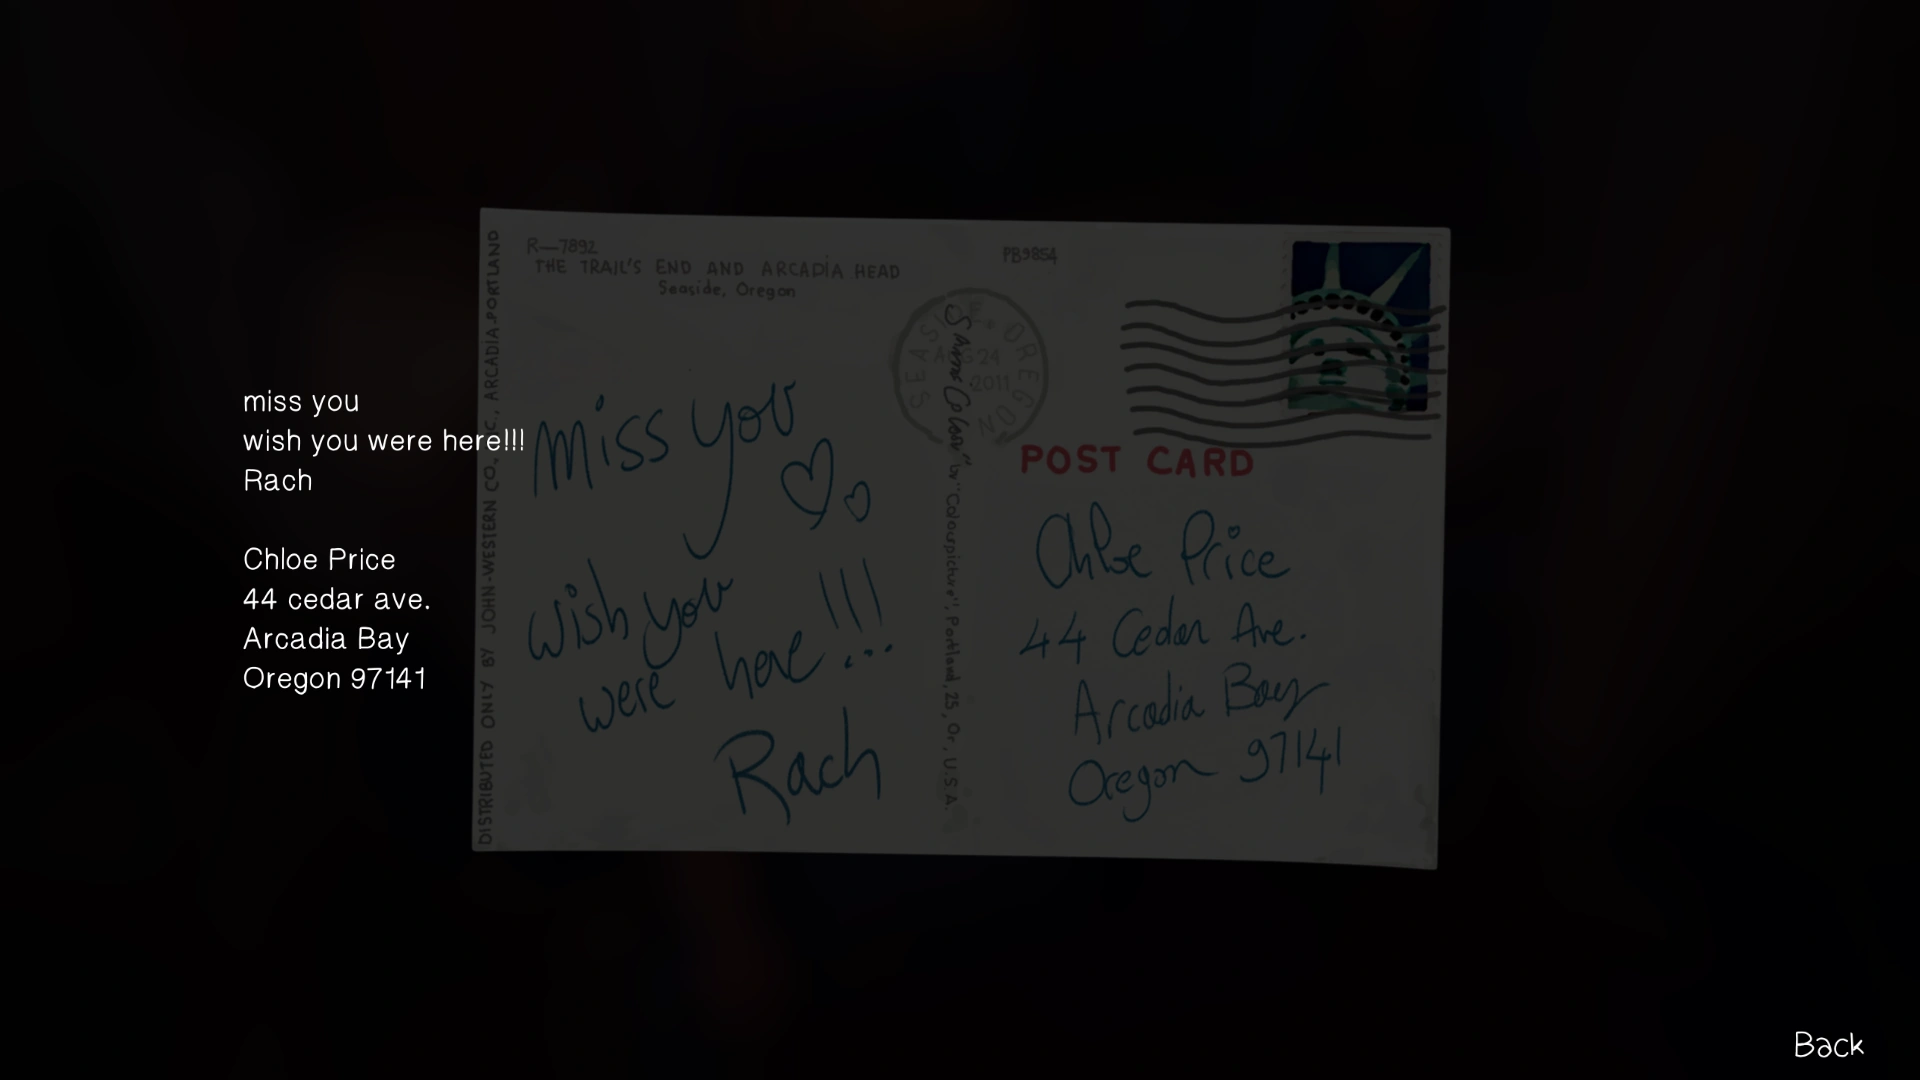 miss you
wish you were here!!!
Rach
Chloe Price
44 cedar ave.
Arcadia Bay
Oregon 97141
DISTRIBUTED ONLY BY JOHN-WESTERN CO., ARCADIA.PORTLAND
R—7892
THE TRAIL'S END AND ARCADIA HEAD
Seaside, Oregon
miss you
wish you
were here!!!
Rach
SEASIDE. OREGON
AUG 24
2011
by "Colourpicture", Portland, 25, Or, U.S.A.
PB9854
POST CARD
Chloe Price
44 Cedar Ave.
Arcadia Bay
Oregon 97141
Back